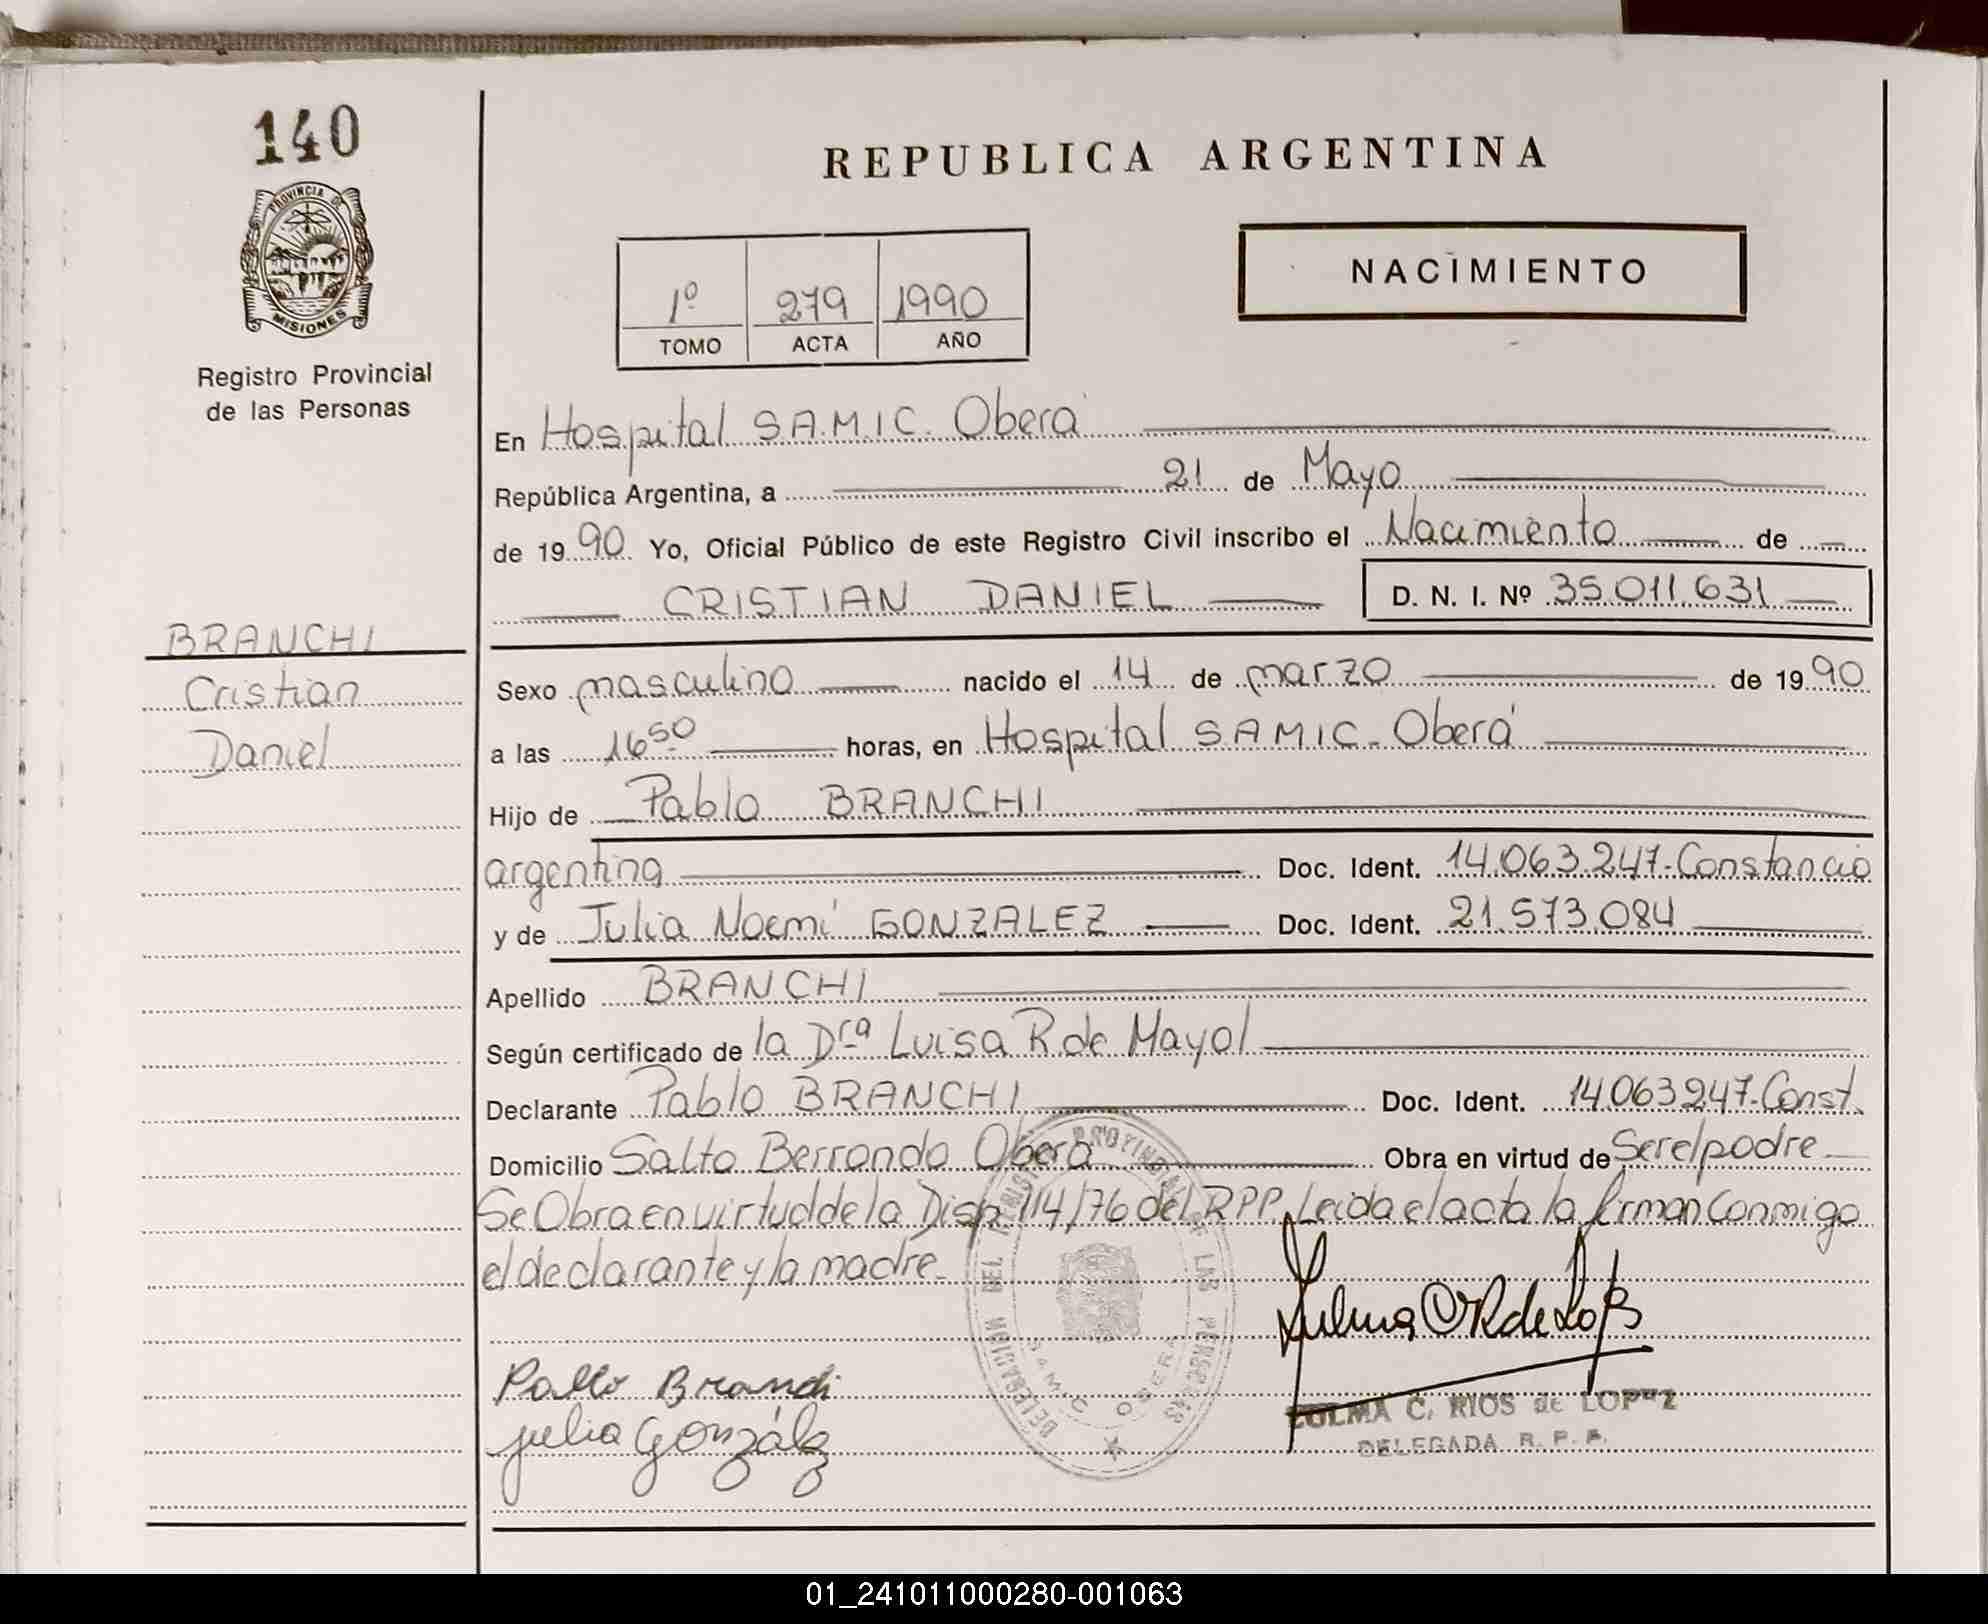 140
PROVINCIA DE
MISIONES
Registro Provincial
de las Personas
BRANCHI
Cristian
Daniel
REPUBLICA ARGENTINA
1º 279 1990
TOMO ACTA AÑO
NACIMIENTO
En Hospital S.A.M.I.C. Oberá
República Argentina, a 21 de Mayo
de 1990 Yo, Oficial Público de este Registro Civil inscribo el Nacimiento de
CRISTIAN DANIEL D. N. I. Nº 35.011.631
Sexo masculino nacido el 14 de marzo de 1990
a las 16⁵⁰ horas, en Hospital S.A.M.I.C. Oberá
Hijo de Pablo BRANCHI
argentina Doc. Ident. 14.063.247-Constancia
y de Julia Noemí GONZALEZ Doc. Ident. 21.573.084
Apellido BRANCHI
Según certificado de la Dra Luisa R. de Mayol
Declarante Pablo BRANCHI Doc. Ident. 14.063247-Const.
Domicilio Salto Berrondo Oberá Obra en virtud de Ser el padre
Se Obra en virtud de la Disp. 114/76 del R.P.P. Leida el acta la firman conmigo
el declarante y la madre.
DELEGACION DEL REGISTRO PROVINCIAL DE LAS PERSONAS
S.A.M.I.C. OBERA
Pablo Branchi
Julia González
ZULMA C. RIOS de LOPEZ
DELEGADA R. P. P.
01_241011000280-001063